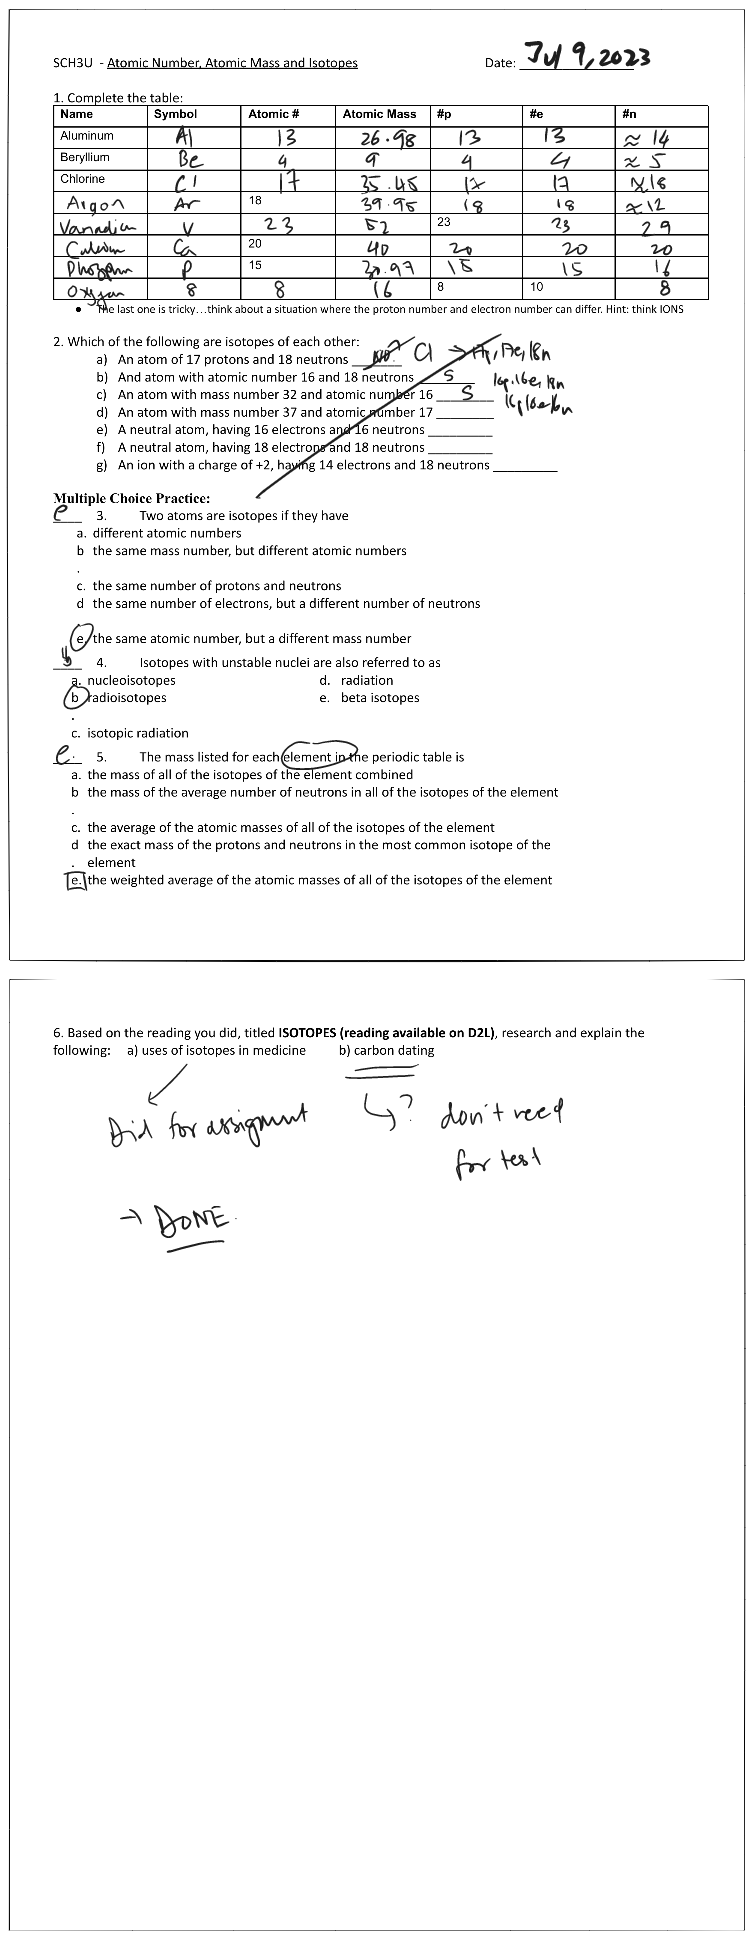 SCH3U - Atomic Number, Atomic Mass and Isotopes Date: Jul 9, 2023
1. Complete the table:
Name Symbol Atomic # Atomic Mass #p #e #n
Aluminum Al 13 26.98 13 13 ≈ 14
Beryllium Be 4 9 4 4 ≈ 5
Chlorine Cl 17 35.45 17 17 ≈18
Argon Ar 18 39.95 18 18 ≈12
Vanadium V 23 52 23 23 29
Calcium Ca 20 40 20 20 20
P 15 30.97 15 15 16
Oxygen 8 8 16 8 10 8
● The last one is tricky…think about a situation where the proton number and electron number can differ. Hint: think IONS
2. Which of the following are isotopes of each other:
a) An atom of 17 protons and 18 neutrons Cl → 17e, 18n
b) And atom with atomic number 16 and 18 neutrons S 16p, 16e, 18n
c) An atom with mass number 32 and atomic number 16 S 16p 16e 16n
d) An atom with mass number 37 and atomic number 17
e) A neutral atom, having 16 electrons and 16 neutrons
f) A neutral atom, having 18 electrons and 18 neutrons
g) An ion with a charge of +2, having 14 electrons and 18 neutrons
Multiple Choice Practice:
e 3. Two atoms are isotopes if they have
a. different atomic numbers
b the same mass number, but different atomic numbers
.
c. the same number of protons and neutrons
d the same number of electrons, but a different number of neutrons
e. the same atomic number, but a different mass number
b 4. Isotopes with unstable nuclei are also referred to as
a. nucleoisotopes d. radiation
b radioisotopes e. beta isotopes
.
c. isotopic radiation
e. 5. The mass listed for each element in the periodic table is
a. the mass of all of the isotopes of the element combined
b the mass of the average number of neutrons in all of the isotopes of the element
.
c. the average of the atomic masses of all of the isotopes of the element
d the exact mass of the protons and neutrons in the most common isotope of the
. element
e. the weighted average of the atomic masses of all of the isotopes of the element
6. Based on the reading you did, titled ISOTOPES (reading available on D2L), research and explain the
following: a) uses of isotopes in medicine b) carbon dating
Did for assigment ? don't need
for test
→ DONE.